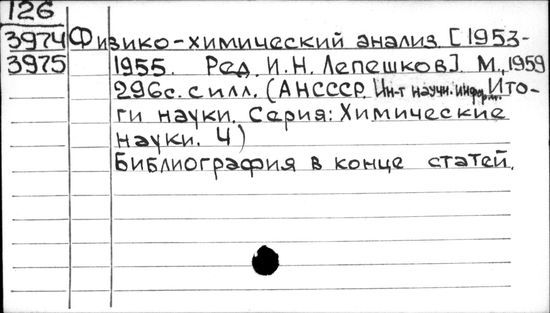 126
3974 Физико-химический анализ. [1953-
3975 1955. Ред. И.Н. Лепешков]. М., 1959
296с. с илл. (АНСССР. Ин-т научн. информ. Ито-
ги науки. Серия: Химические
науки. 4)
Библиография в конце статей.